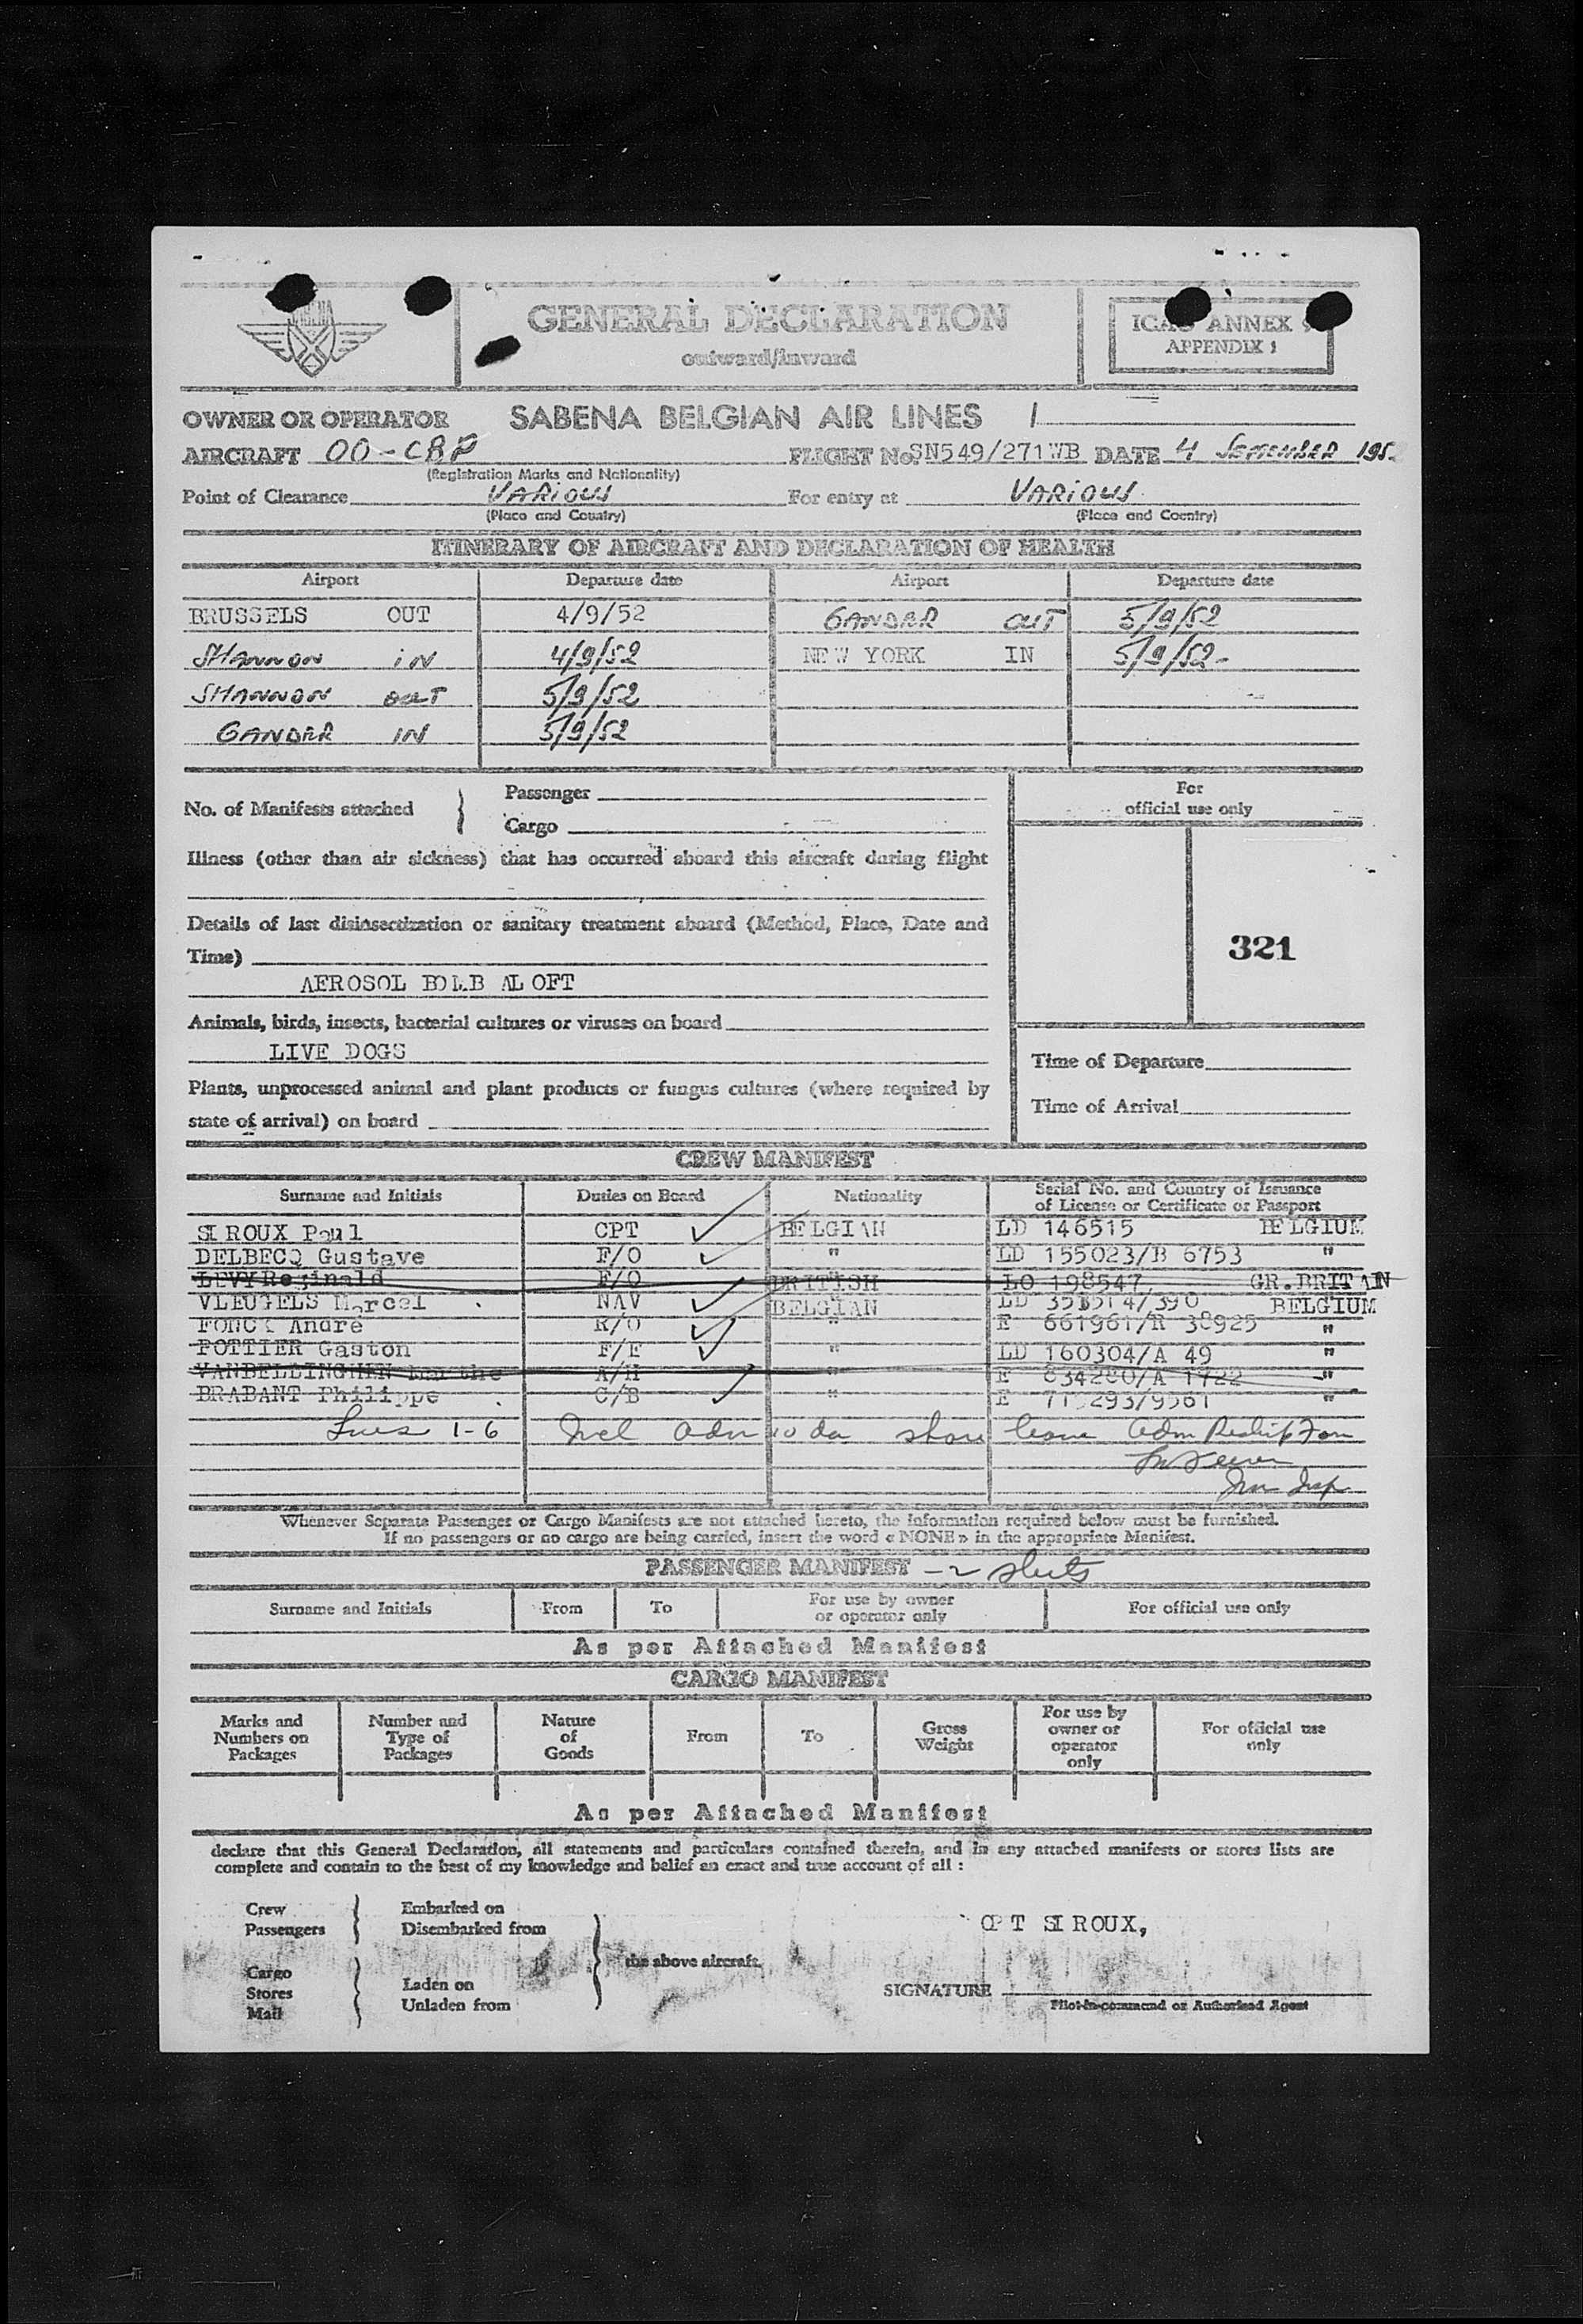 SABENA
GENERAL DECLARATION
outward/inward
ICAO ANNEX 9
APPENDIX 1
OWNER OR OPERATOR SABENA BELGIAN AIR LINES 1
AIRCRAFT OO-CBP FLIGHT No. SN549/271WB DATE 4 SEPTEMBER 195
(Registration Marks and Nationality)
Point of Clearance VARIOUS For entry at VARIOUS
(Place and Country) (Place and Country)
ITINERARY OF AIRCRAFT AND DECLARATION OF HEALTH
Airport Departure date Airport Departure date
BRUSSELS OUT 4/9/52 GANDER OUT 5/9/52
SHANNON IN 4/9/52 NEW YORK IN 5/9/52-
SHANNON OUT 5/9/52
GANDER IN 5/9/52
No. of Manifests attached } Passenger
Cargo
For
official use only
Illness (other than air sickness) that has occurred aboard this aircraft during flight
Details of last disinsectization or sanitary treatment aboard (Method, Place, Date and
Time)
321
AEROSOL BOMB ALOFT
Animals, birds, insects, bacterial cultures or viruses on board
LIVE DOGS
Time of Departure
Plants, unprocessed animal and plant products or fungus cultures (where required by
state of arrival) on board
Time of Arrival
CREW MANIFEST
Surname and Initials Duties on Board Nationality Serial No. and Country of Issuance
of License or Certificate or Passport
SIROUX Paul CPT BELGIAN LD 146515 BELGIUM
DELBECQ Gustave F/O " LD 155023/B 6753 "
LEVY Reginald F/O BRITISH LO 198547, GR.BRITAIN
VLEUGELS Marcel NAV BELGIAN LD /390 BELGIUM
FONCK André R/O " E 661961/R 38925 "
POTTIER Gaston F/E " LD 160304/A 49 "
VANBELLINGHEN Marthe A/H " E 834280/A 1722 "
BRABANT Philippe C/B " E /9561 "
Lines 1-6 Incl Adm 10 da shore leave Adm
Imm Insp
Whenever Separate Passenger or Cargo Manifests are not attached hereto, the information required below must be furnished.
If no passengers or no cargo are being carried, insert the word « NONE » in the appropriate Manifest.
PASSENGER MANIFEST - 2 sheets
Surname and Initials From To For use by owner
or operator only For official use only
As per Attached Manifest
CARGO MANIFEST
Marks and
Numbers on
Packages
Number and
Type of
Packages
Nature
of
Goods
From To
Gross
Weight
For use by
owner or
operator
only
For official use
only
As per Attached Manifest
declare that this General Declaration, all statements and particulars contained therein, and in any attached manifests or stores lists are
complete and contain to the best of my knowledge and belief an exact and true account of all :
Crew
Passengers
Embarked on
Disembarked from
CPT SIROUX,
the above aircraft.
Cargo
Stores
Mail
Laden on
Unladen from
SIGNATURE
Pilot-in-command or Authorised Agent